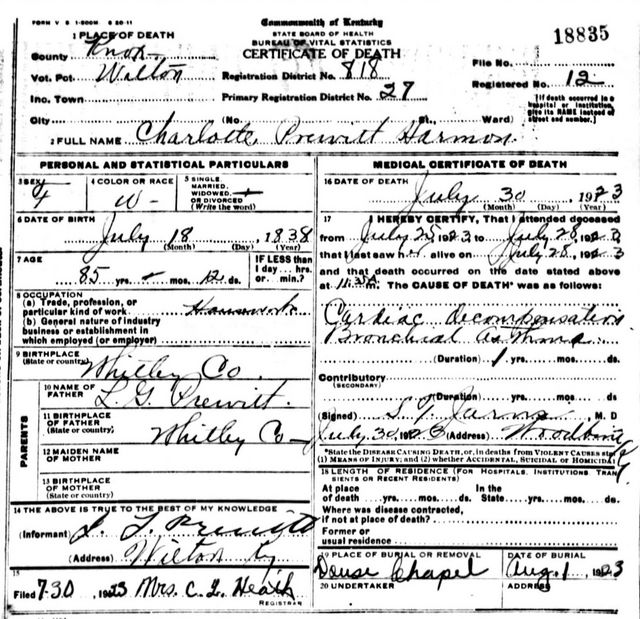 FORM V S 1-500M 6 20-11
Commonwealth of Kentucky
STATE BOARD OF HEALTH
BUREAU OF VITAL STATISTICS
CERTIFICATE OF DEATH
18835
1 PLACE OF DEATH
County Knox
Vot. Pct. Wilton
Inc. Town
City (No. St., Ward)
Registration District No. 818
Primary Registration District No. 27
File No.
Registered No. 12
[If death occurred in a hospital or institution, give its NAME instead of street and number.]
2 FULL NAME Charlotte Prewitt Harmon
PERSONAL AND STATISTICAL PARTICULARS
3 SEX F
4 COLOR OR RACE W-
5 SINGLE, MARRIED, WIDOWED, OR DIVORCED (Write the word)
6 DATE OF BIRTH
July 18, 1838
(Month) (Day) (Year)
7 AGE
85 yrs. - mos. 12 ds.
IF LESS than 1 day... hrs. or min.?
8 OCCUPATION
(a) Trade, profession, or particular kind of work Housework
(b) General nature of industry business or establishment in which employed (or employer)
9 BIRTHPLACE (State or country)
Whitley Co.
PARENTS
10 NAME OF FATHER L. G. Prewitt.
11 BIRTHPLACE OF FATHER (State or country) Whitley Co -
12 MAIDEN NAME OF MOTHER
13 BIRTHPLACE OF MOTHER (State or country)
14 THE ABOVE IS TRUE TO THE BEST OF MY KNOWLEDGE
(Informant) Prewitt
(Address) Wilton Ky
15
Filed 7-30 1923 Mrs. C. L. Heath
REGISTRAR
MEDICAL CERTIFICATE OF DEATH
16 DATE OF DEATH
July 30, 1923
(Month) (Day) (Year)
17 I HEREBY CERTIFY, That I attended deceased
from July 25 1923, to July 28, 192
that I last saw h alive on July 28, 1923
and that death occurred on the date stated above
at m. The CAUSE OF DEATH* was as follows:
Cardiac decompensation
Bronchial Asthma
(Duration) 1 yrs. mos. ds.
Contributory
(SECONDARY)
(Duration) yrs. mos. ds.
(Signed) M. D
July 30, 1923 (Address) Woodbine Ky
*State the DISEASE CAUSING DEATH, or, in deaths from VIOLENT CAUSES state (1) MEANS OF INJURY; and (2) whether ACCIDENTAL, SUICIDAL or HOMICIDAL
18 LENGTH OF RESIDENCE (FOR HOSPITALS, INSTITUTIONS TRANSIENTS OR RECENT RESIDENTS)
At place of death yrs. mos. ds. In the State yrs. mos. ds.
Where was disease contracted, if not at place of death?
Former or usual residence
19 PLACE OF BURIAL OR REMOVAL
Chapel
DATE OF BURIAL
Aug. 1 1923
20 UNDERTAKER
ADDRESS